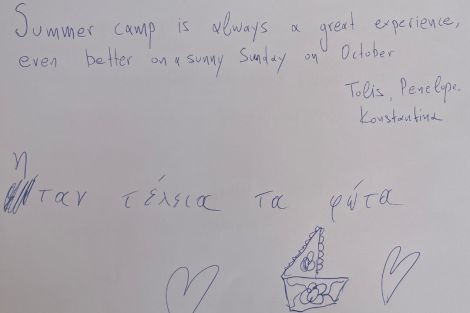 Summer camp is always a great experience,
even better on a sunny Sunday on October
Tolis, Penelope,
Konstantina
Ηταν τέλεια τα φώτα